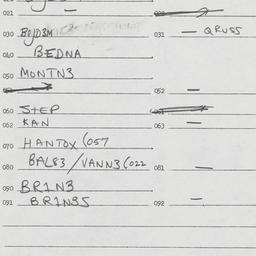 021 —
030 BOJD3M 031 — QRUSS
040 BEDNA
050 MONTN3
052 —
060 STEP
062 KAN 063 —
070 HANTOX (057
080 BAL83 / VANN3 (022 081 —
090 BR1N3
091 BR1NS5 092 —